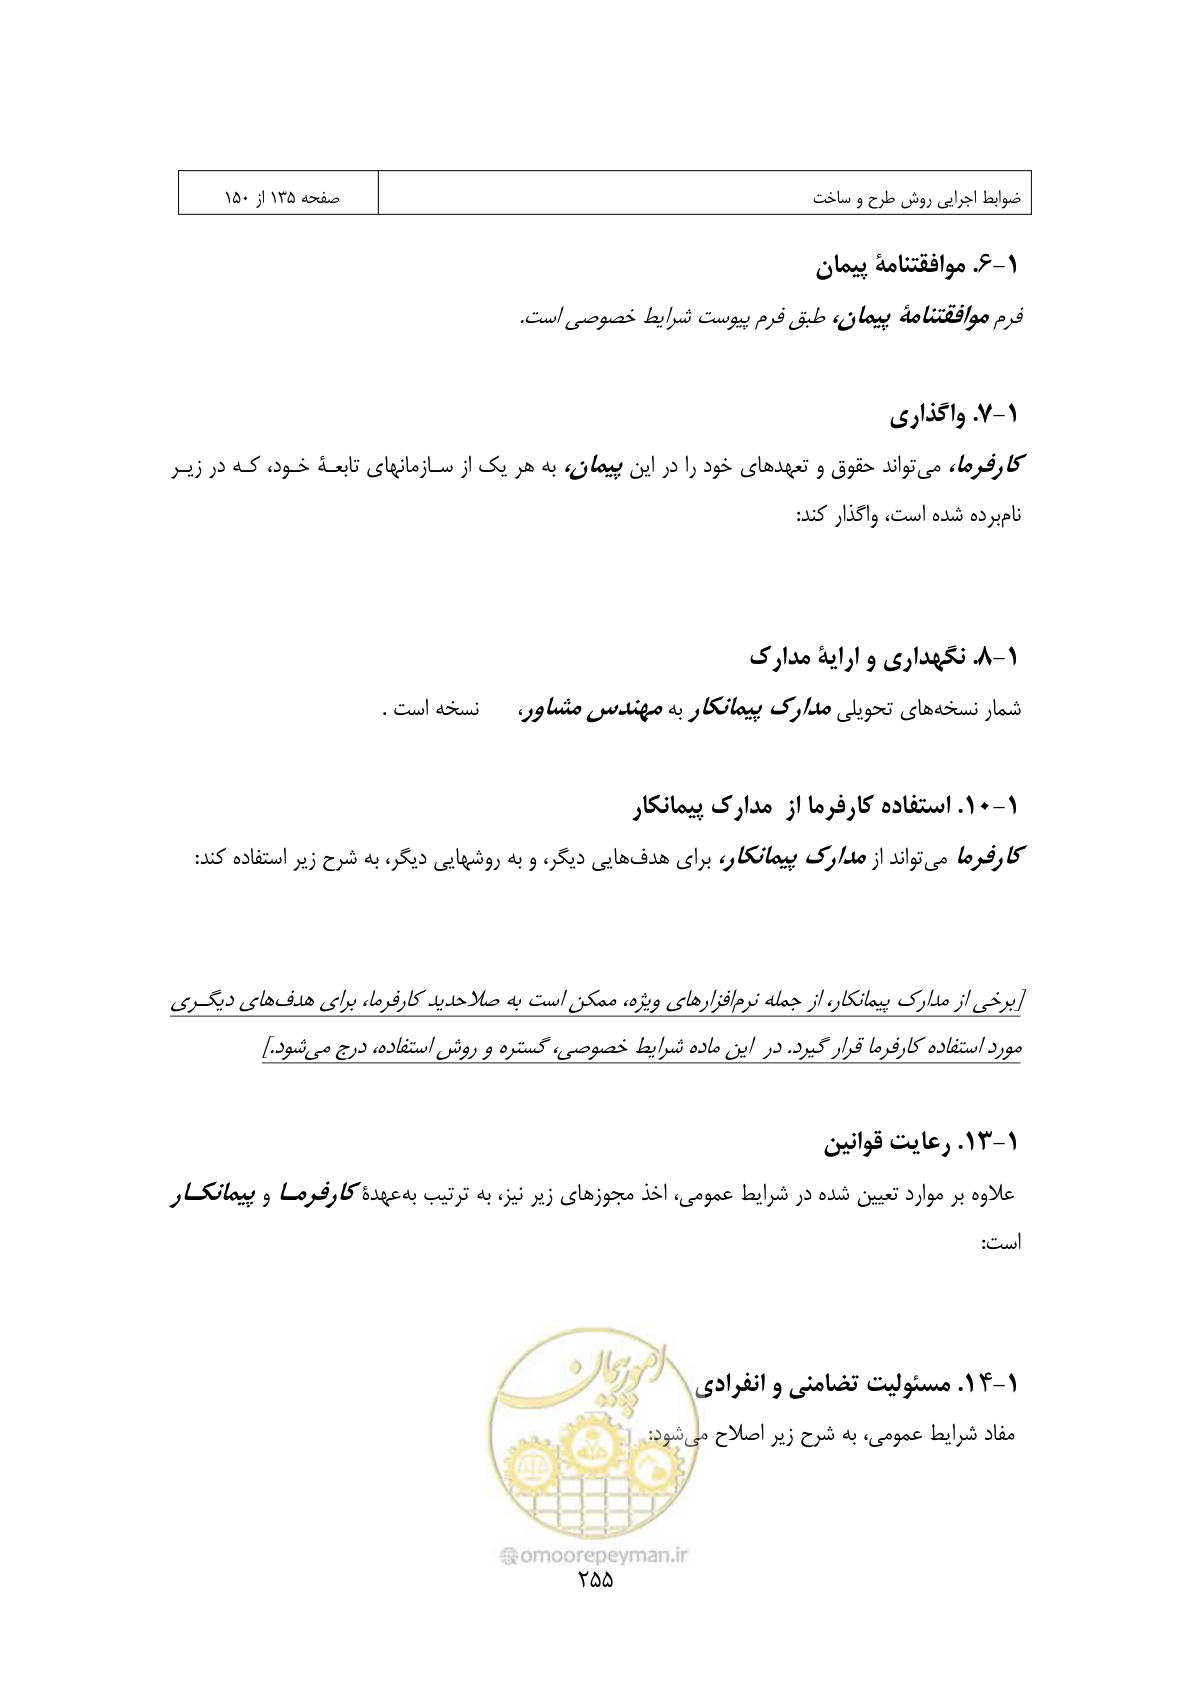 ضوابط اجرایی روش طرح و ساخت
صفحه ۱۳۵ از ۱۵۰
۱-۶. موافقتنامهٔ پیمان
فرم موافقتنامهٔ پیمان، طبق فرم پیوست شرایط خصوصی است.
۱-۷. واگذاری
کارفرما، می‌تواند حقوق و تعهدهای خود را در این پیمان، به هر یک از سـازمانهای تابعـهٔ خـود، کـه در زیـر
نام‌برده شده است، واگذار کند:
۱-۸. نگهداری و ارایهٔ مدارک
شمار نسخه‌های تحویلی مدارک پیمانکار به مهندس مشاور، نسخه است .
۱-۱۰. استفاده کارفرما از مدارک پیمانکار
کارفرما می‌تواند از مدارک پیمانکار، برای هدف‌هایی دیگر، و به روشهایی دیگر، به شرح زیر استفاده کند:
[برخی از مدارک پیمانکار، از جمله نرم‌افزارهای ویژه، ممکن است به صلاحدید کارفرما، برای هدف‌های دیگـری
مورد استفاده کارفرما قرار گیرد. در این ماده شرایط خصوصی، گستره و روش استفاده، درج می‌شود.]
۱-۱۳. رعایت قوانین
علاوه بر موارد تعیین شده در شرایط عمومی، اخذ مجوزهای زیر نیز، به ترتیب به‌عهدهٔ کارفرمـا و پیمانکـار
است:
۱-۱۴. مسئولیت تضامنی و انفرادی
مفاد شرایط عمومی، به شرح زیر اصلاح می‌شود:
امور پیمان
omoorepeyman.ir
۲۵۵